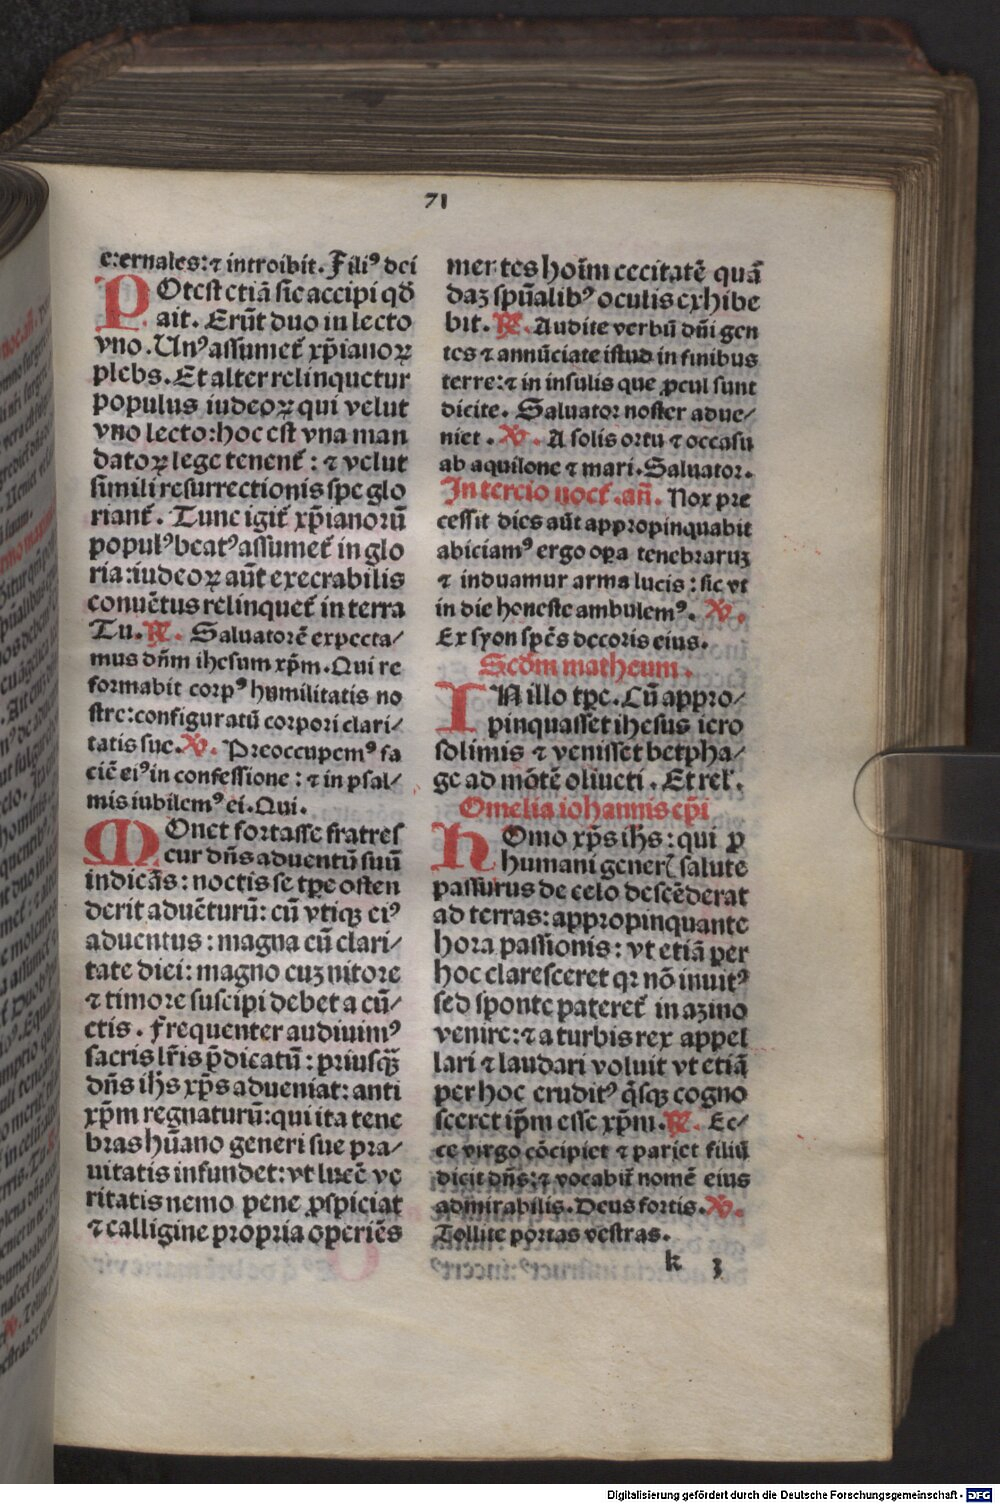 71
eternales: ⁊ introibit. Filiꝰ dei
POtest etiā sic accipi qd̄
ait. Erūt duo in lecto
vno. Unꝰ assumet᷑ xp̄ianoꝝ
plebs. Et alter relinquetur
populus iudeoꝝ qui velut
vno lecto: hoc est vna man
datoꝝ lege tenent᷑: ⁊ velut
simili resurrectionis spe glo
riant᷑. Tunc igit᷑ xp̄ianorū
populꝰ beatꝰ assumet᷑ in glo
ria: iudeoꝝ aūt execrabilis
conuētus relinquet᷑ in terra
Tu. ℟. Saluatorē expecta/
mus dn̄m ihesum xp̄m. Qui re
formabit corpꝰ humilitatis no
stre: configuratū corpori clari/
tatis sue. ℣. Preoccupemꝰ fa
ciē eiꝰ in confessione: ⁊ in psal/
mis iubilemꝰ ei. Qui.
MOnet fortasse fratres
cur dn̄s aduentū suū
indicās: noctis se tp̄e osten
derit aduēturū: cū vtiqꝫ eiꝰ
aduentus: magna cū clari/
tate diei: magno cuꝫ nitore
⁊ timore suscipi debet a cū/
ctis. Frequenter audiuimꝰ
sacris lr̄is p̄dicatū: priusqꝫ̄
dn̄s ih̄s xp̄s adueniat: anti
xp̄m regnaturū: qui ita tene
bras hūano generi sue pra/
uitatis infundet: vt lucē ve
ritatis nemo pene ꝓspiciat
⁊ calligine propria operiēs
mentes hoīm cecitatē quā
daꝫ spūalibꝰ oculis exhibe
bit. ℟. Audite verbū dn̄i gen
tes ⁊ annūciate istud in finibus
terre: ⁊ in insulis que ꝓcul sunt
dicite. Saluator noster adue/
niet. ℣. A solis ortu ⁊ occasu
ab aquilone ⁊ mari. Saluator.
In tercio noct᷑. añ. Nox pre
cessit dies aūt appropinquabit
abiciamꝰ ergo opa tenebraruꝫ
⁊ induamur arma lucis: sic vt
in die honeste ambulemꝰ. ℣.
Ex syon spēs decoris eius.
Scd̄m matheum.
IN illo tp̄e. Cū appro/
pinquasset ihesus iero
solimis ⁊ venisset betpha/
ge ad mōtē oliueti. Et rel᷑.
Omelia iohannis ep̄i
HOmo xp̄s ih̄s: qui ꝓ
humani generꝭ salute
passurus de celo descēderat
ad terras: appropinquante
hora passionis: vt etiā per
hoc claresceret qr nō inuitꝰ
sed sponte pateret᷑ in azino
venire: ⁊ a turbis rex appel
lari ⁊ laudari voluit vt etiā
per hoc eruditꝰ q̄sqꝫ cogno
sceret ip̄m esse xp̄m. ℟. Ec/
ce virgo cōcipiet ⁊ pariet filiū
dicit dn̄s: ⁊ vocabit᷑ nomē eius
admirabilis. Deus fortis. ℣.
Tollite portas vestras.
k 3
Digitalisierung gefördert durch die Deutsche Forschungsgemeinschaft - DFG